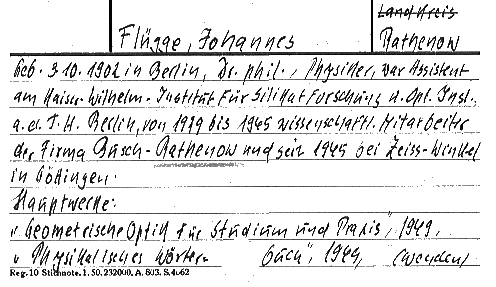 Landkreis
Flügge, Johannes Rathenow
Geb. 3.10.1902 in Berlin, Dr. phil., Physiker, war Assistent
am Kaiser-Wilhelm-Institut für Silikatforschung u. Opt. Inst.
a. d. T. H. Berlin, von 1929 bis 1945 wissenschaftl. Mitarbeiter
der Firma Busch-Rathenow und seit 1945 bei Zeiss-Winkel
in Göttingen.
Hauptwerke:
"Geometrische Optik für Studium und Praxis", 1949,
"Physikalisches Wörterbuch", 1949, (Werden)
Reg. 10 Stichnote. 1. 50. 232000. A. 803. S.4062